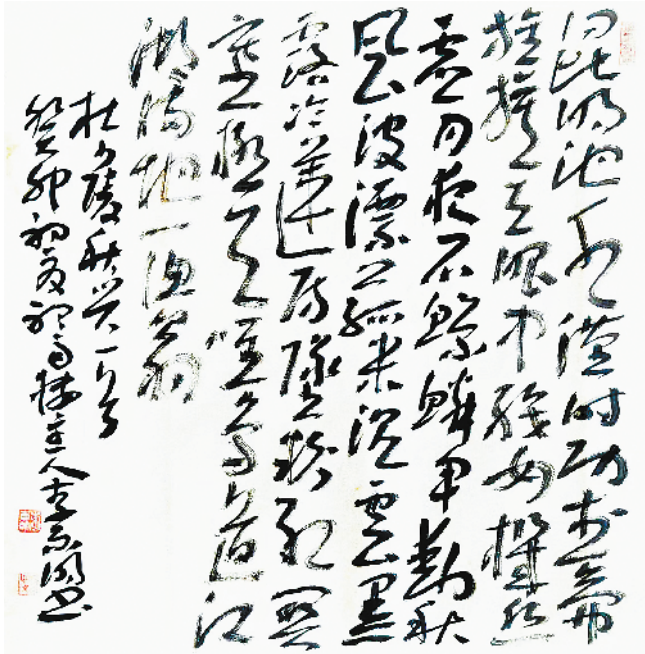 昆明池水漢時功武帝
旌旗在眼中織女機絲
虛月夜石鯨鱗甲動秋
風波漂菰米沉雲黑
露冷蓮房墜粉紅關
塞極天唯鳥道江
湖滿地一漁翁
杜少陵秋興一首
癸卯初夏 主人 書